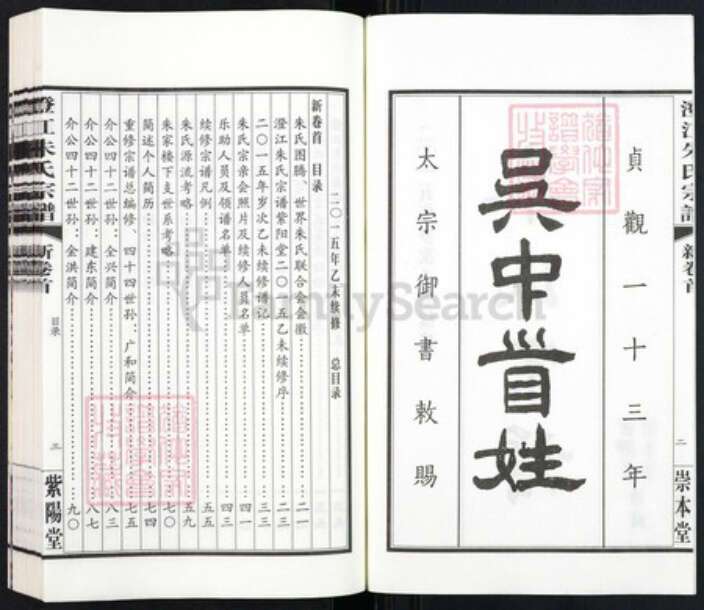 澄江朱氏宗譜
新卷首
二
崇本堂
貞觀一十三年
吳中首姓
太宗御書敕賜
二〇一五年乙未续修 总目录
新卷首 目录
朱氏图腾、世界朱氏联合会会徽……二一
澄江朱氏宗谱紫阳堂二〇一五乙未续修序……二三
二〇一五年岁次乙未续修谱记……三三
朱氏宗亲会照片及续修人员名单……四一
乐助人员及领谱名单……四三
续修宗谱凡例……五五
朱氏源流考略……五九
朱家楼下支世系考略……七〇
简述个人简历……七四
重修宗谱总编修、四十四世孙：广和简介……七五
介公四十二世孙：全兴简介……八三
介公四十二世孙：建东简介……八七
介公四十二世孙：金洪简介……九〇
澄江朱氏宗譜
新卷首
目录
三
紫陽堂
FamilySearch